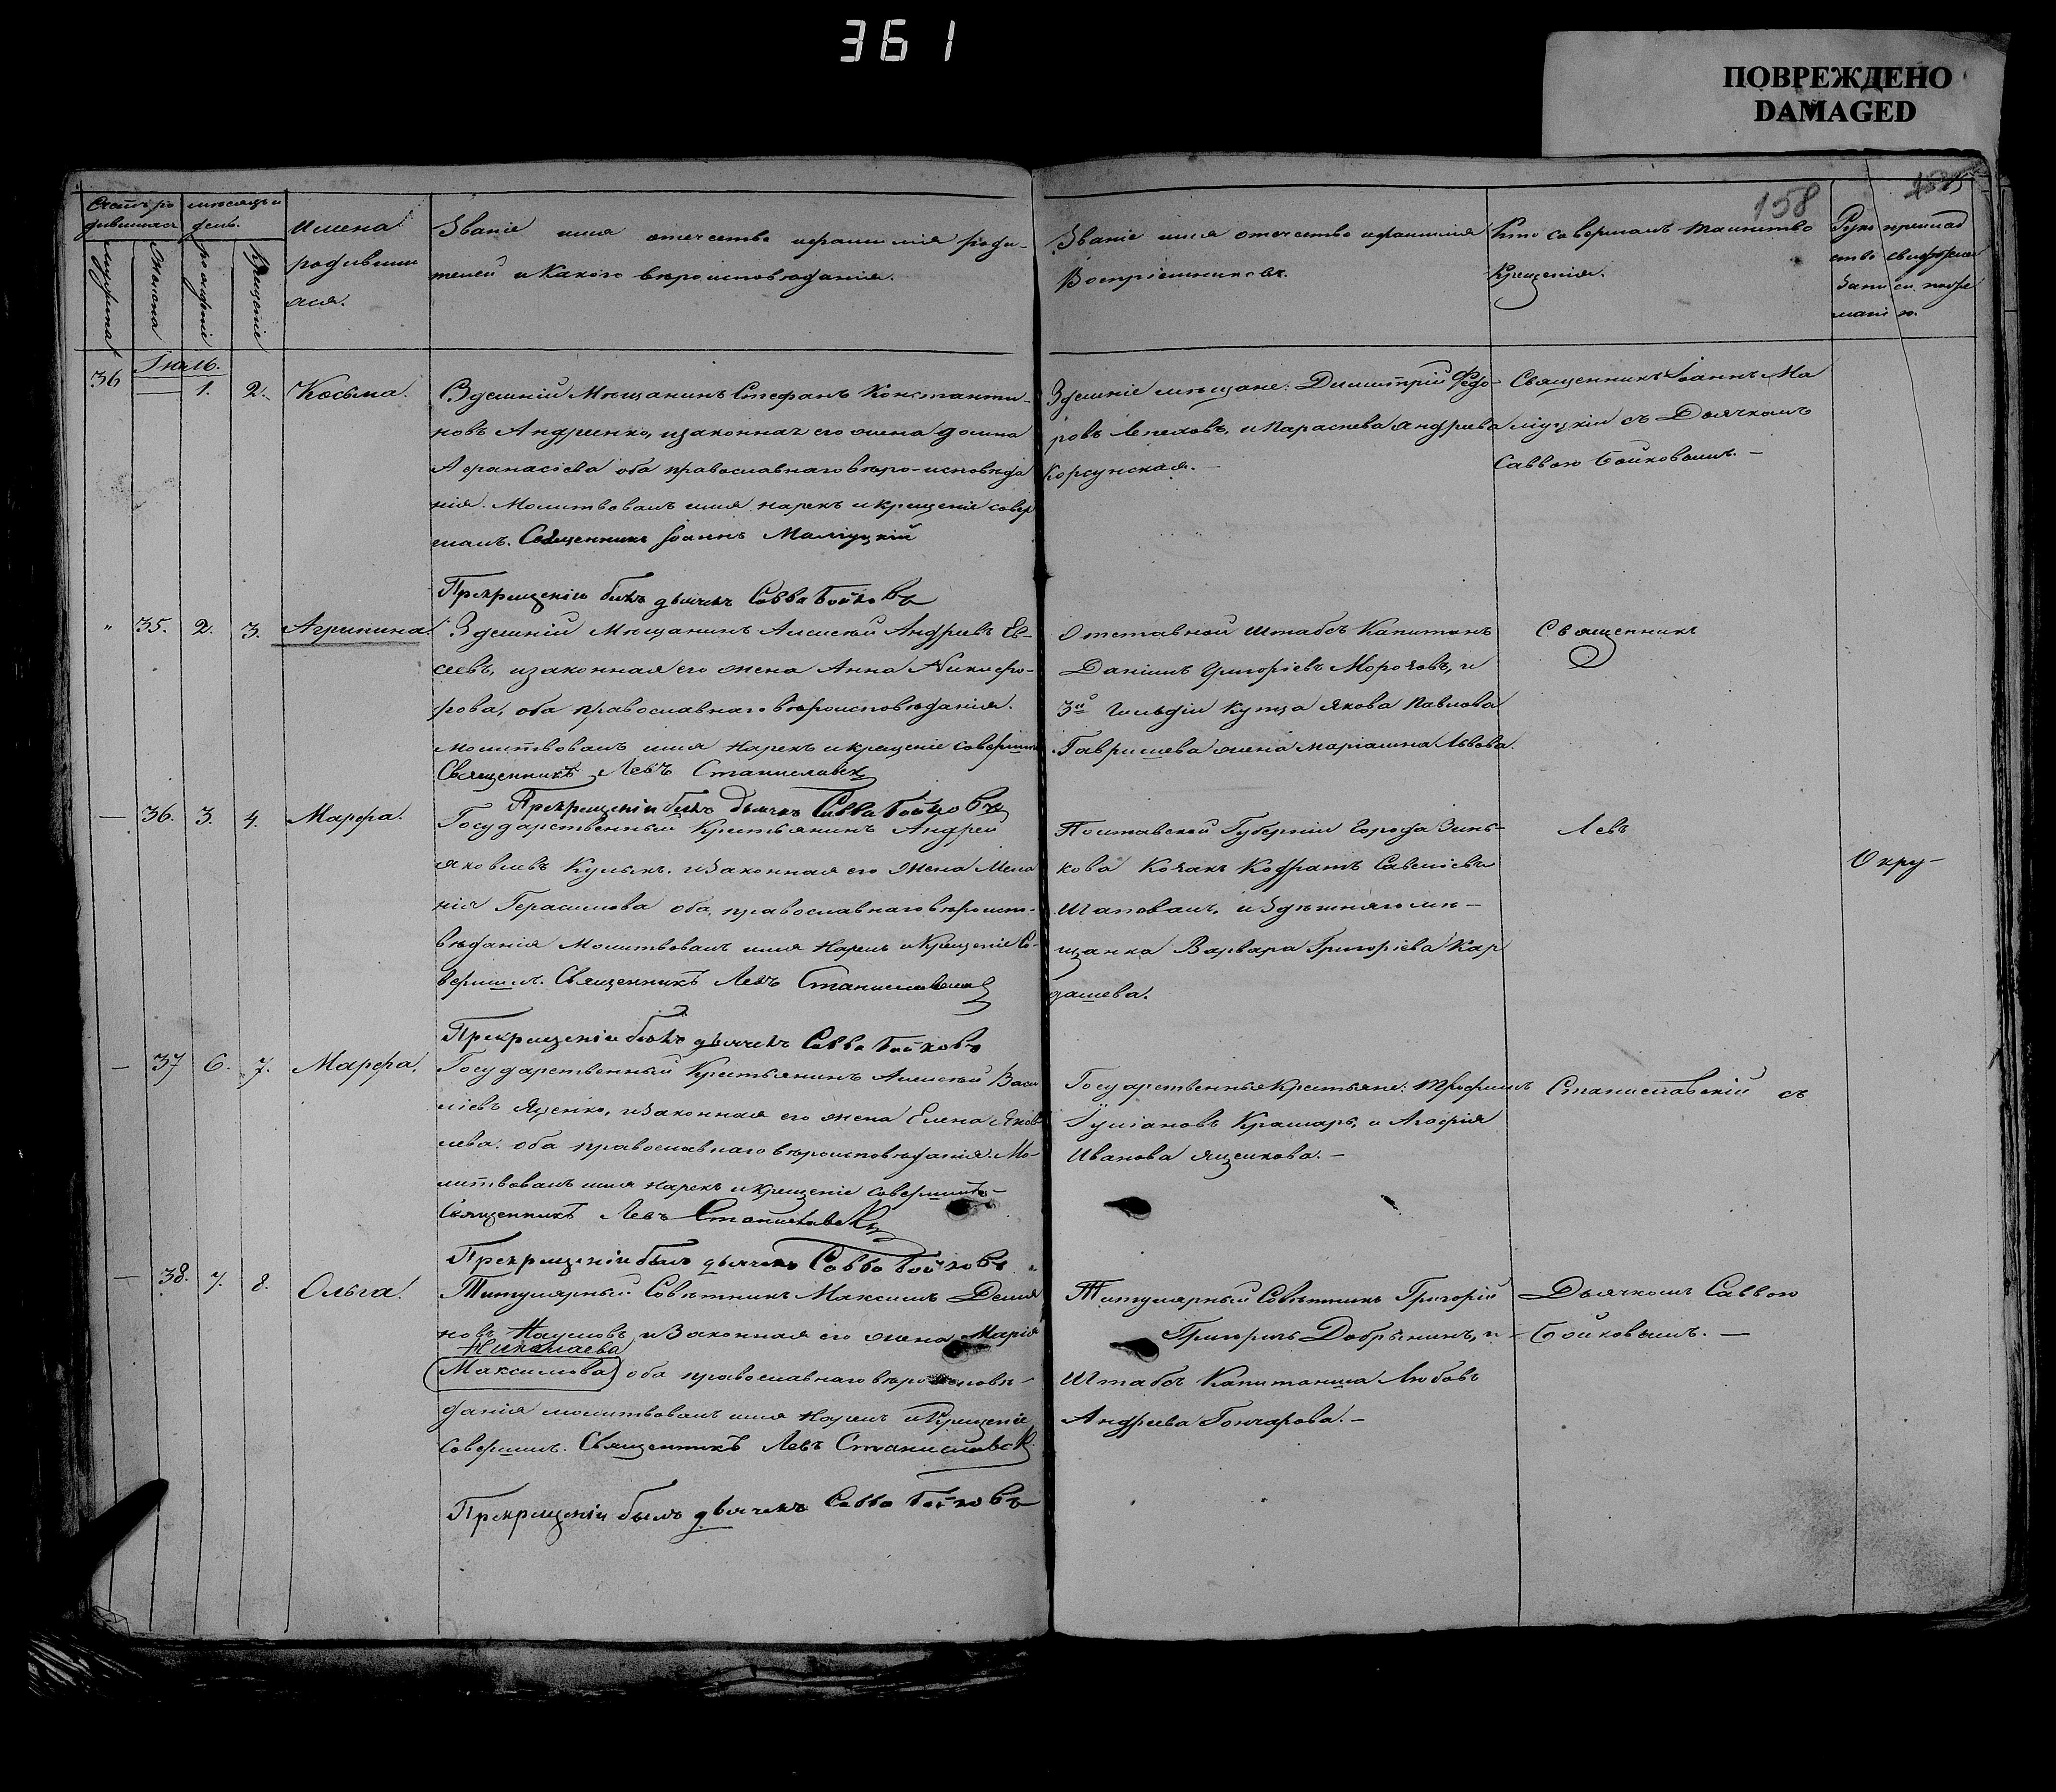 361
ПОВРЕЖДЕНО
DAMAGED
158
Счетъ ро
дившихся
мѣсяцъ и
день.
мужеска
женска
рожденіе
крещеніе
Имена
родивших
ся.
Званіе имя отечество и фамилія роди-
телей и какого вѣроисповѣданія.
Званіе имя отечество и фамилія
Воспріемниковъ.
Кто совершалъ таинство
Крещенія.
Руко
записи
Іюль.
36 1. 2. Косьма.
Здешній Мѣщанинъ Стефанъ Константи-
новъ Андреенко, и законная его жена Домна
Афанасіева оба православнаго вѣро-исповѣда
нія. Молитвовалъ имя нарекъ и крещеніе совер
шалъ. Священникъ Іоаннъ Маліуцкій
При крещеніи былъ дьячекъ Савва Бойковъ
Здешніе мѣщане: Димитрій Федо-
ровъ Лепеховъ, и Параскева Андреева
Корсунская.
Священникъ Іоаннъ Ма
ліуцкій съ Дьячкомъ
Саввою Бойковымъ. —
" 35. 2. 3. Агрипина.
Здешній Мѣщанинъ Алексѣй Андреевъ Ев-
сеевъ, и законная его жена Анна Никифо-
рова, оба православнаго вѣроисповѣданія.
молитвовалъ имя нарекъ и крещеніе совершилъ
Священникъ Левъ Станиславск
При крещеніи былъ дьячекъ Савва Бойковъ
Отставной Штабсъ Капитанъ
Даніилъ Григоріевъ Морозовъ, и
3й Гильдіи Купца Якова Павлова
Гавришева жена Маріамна Львова.
Священникъ
— 36. 3. 4. Марфа.
Государственный Крестьянинъ Андрей
Яковлевъ Кулыкъ. и законная его жена Мела
нія Герасимова оба православнаго вѣроиспо-
вѣданія Молитвовалъ имя Нарекъ и Крещеніе Со-
вершилъ. Священникъ Левъ Станиславск
При крещеніи былъ дьячекъ Савва Бойковъ
Полтавской Губерніи Города Зинь-
кова Козакъ Кодратъ Савеліевъ
Шаповалъ, и здѣшняго мѣ-
щанка Варвара Григоріева Кар
дашева.
Левъ
Окру-
— 37 6. 7. Марфа.
Государственный Крестьянинъ Алексѣй Васи
ліевъ Яценко, и законная его жена Елена Яков-
лева. оба православнаго вѣроисповѣданія. Мо-
литвовалъ имя нарекъ и крещеніе совершилъ
Священникъ Левъ Станиславск
При крещеніи былъ дьячекъ Савва Бойковъ
Государственные Крестьяне: Трофимъ
Іуліановъ Крамаръ, и Агафія
Иванова Ященкова. —
Станиславскій съ
— 38. 7. 8. Ольга.
Титулярный Совѣтникъ Максимъ Демья
новъ Наумовъ, и законная его жена Марія
Николаева
Максимова оба православнаго вѣроисповѣ-
данія молитвовалъ имя Нарекъ и Крещеніе
Совершилъ. Священникъ Левъ Станиславск
При крещеніи былъ дьячекъ Савва Бойковъ
Титулярный Совѣтникъ Григорій
Григорьевъ Добрынинъ, и
Штабсъ Капитанша Любовь
Андреева Гончарова. —
Дьячкомъ Саввою
Бойковымъ. —